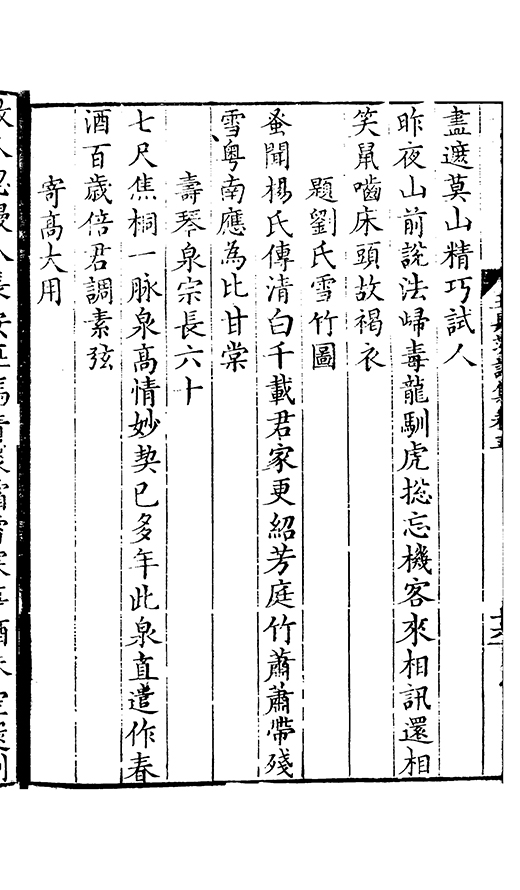 盡遮莫山精巧試人
昨夜山前說法歸毒龍馴虎揔忘機客來相訊還相
笑鼠嚙床頭故褐衣
題劉氏雪竹圖
蚤聞楊氏傳清白千載君家更紹芳庭竹蕭蕭帶殘
雪粵南應為比甘棠
壽琴泉宗長六十
七尺焦桐一脉泉高情妙契已多年此泉直遣作春
酒百歲倍君調素弦
寄高大用